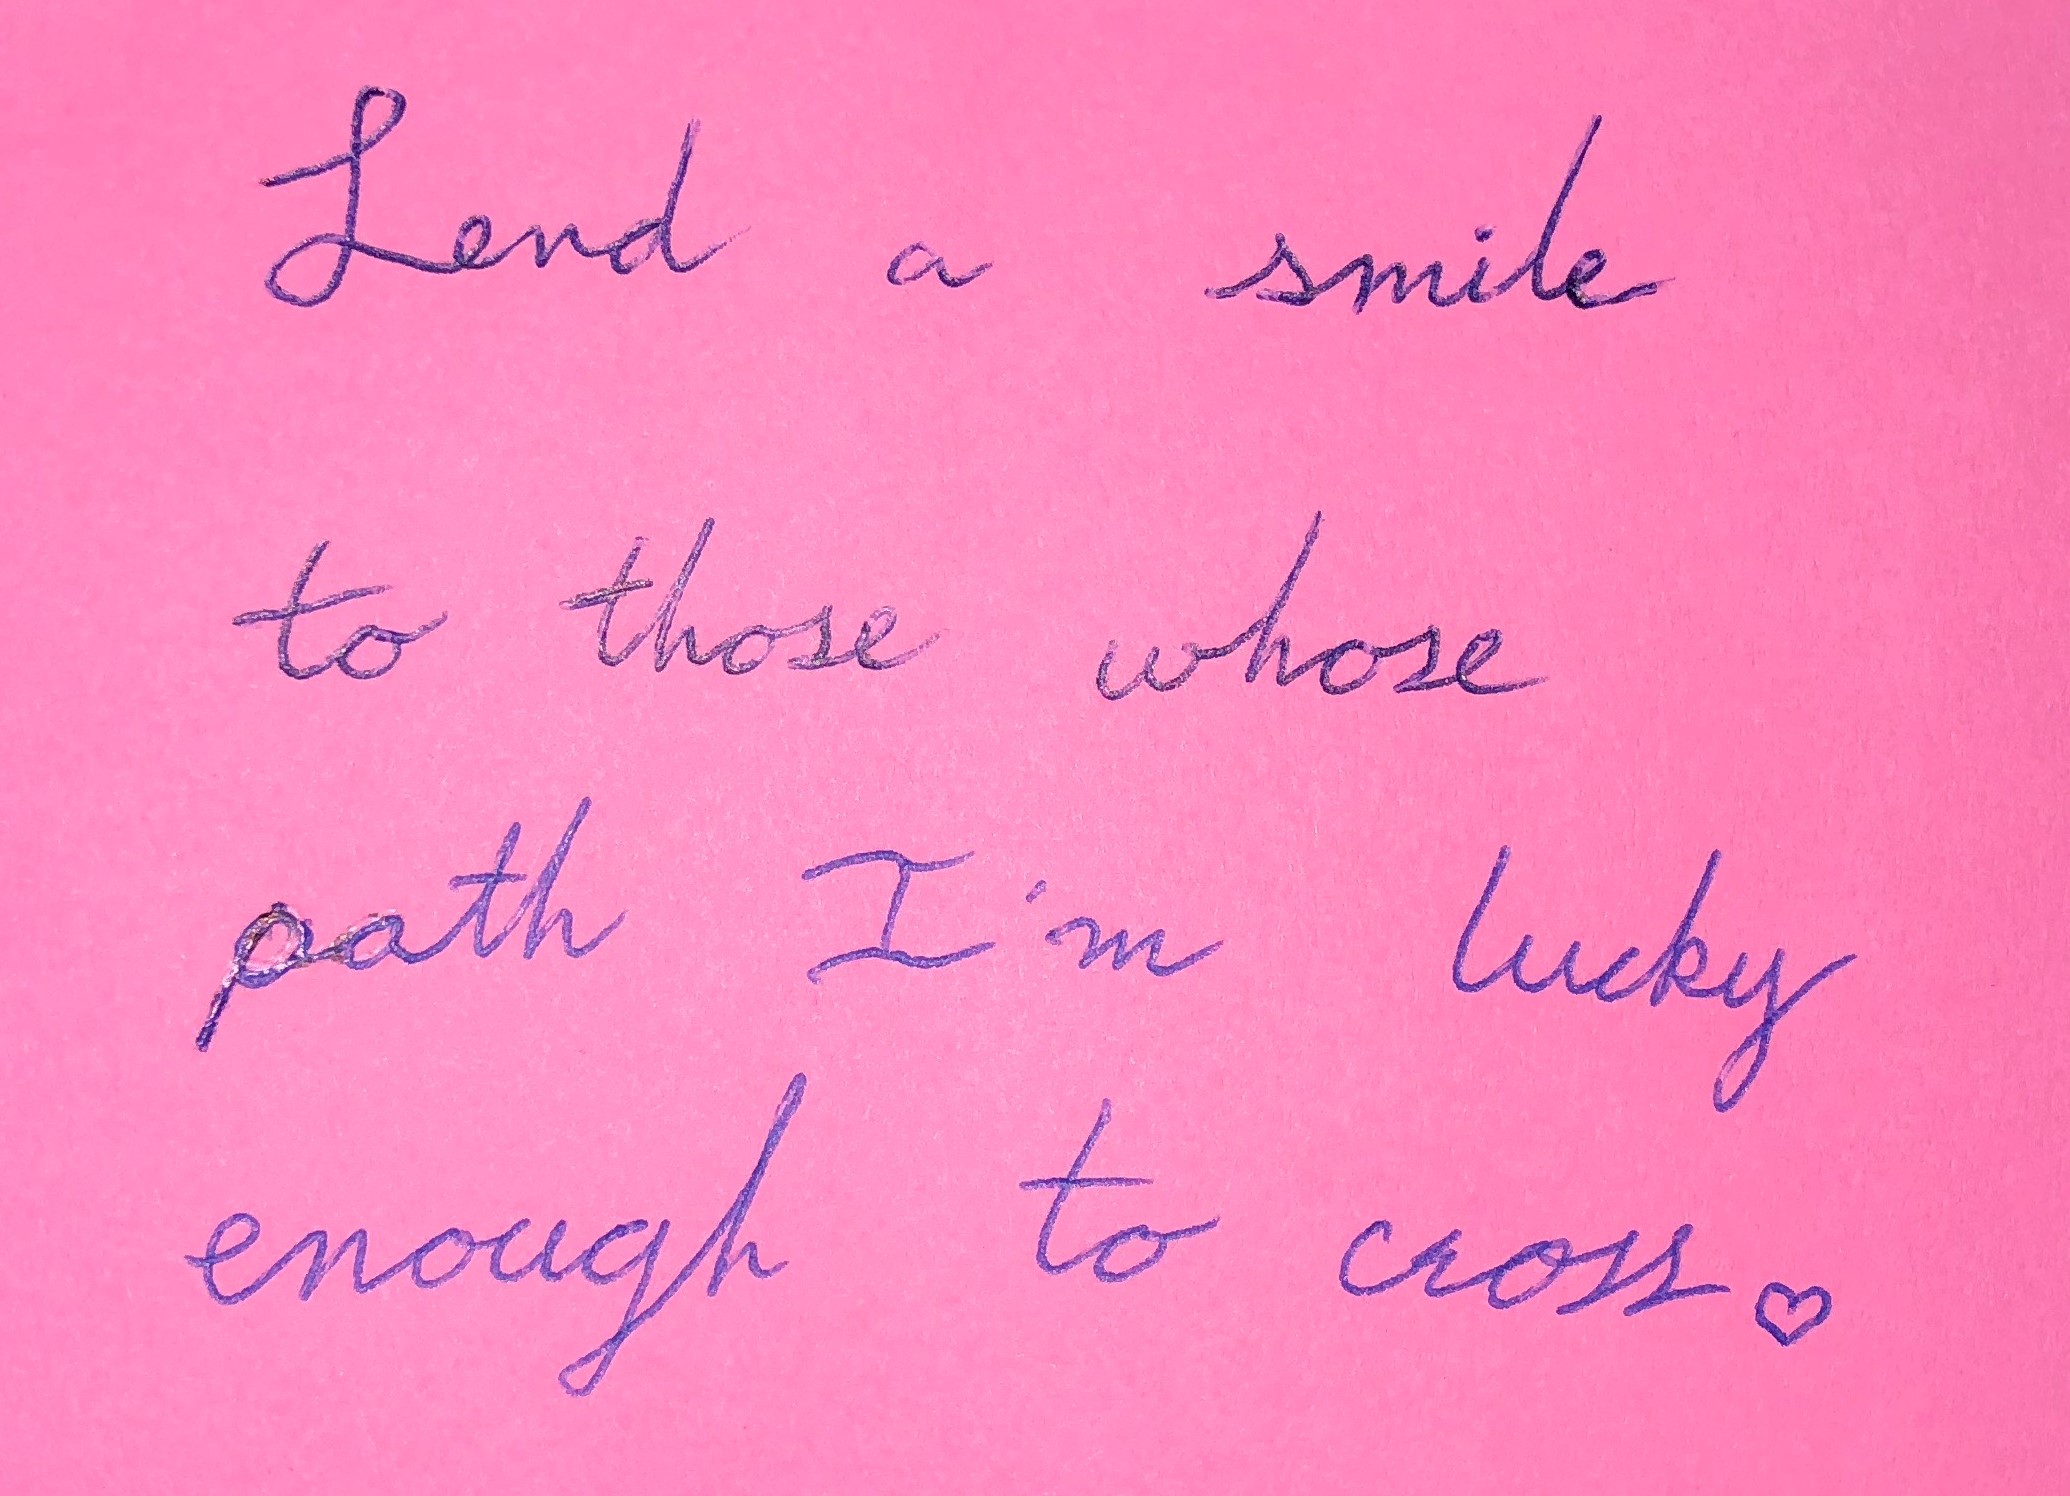 Lend a smile
to those whose
path I'm lucky
enough to cross ♡